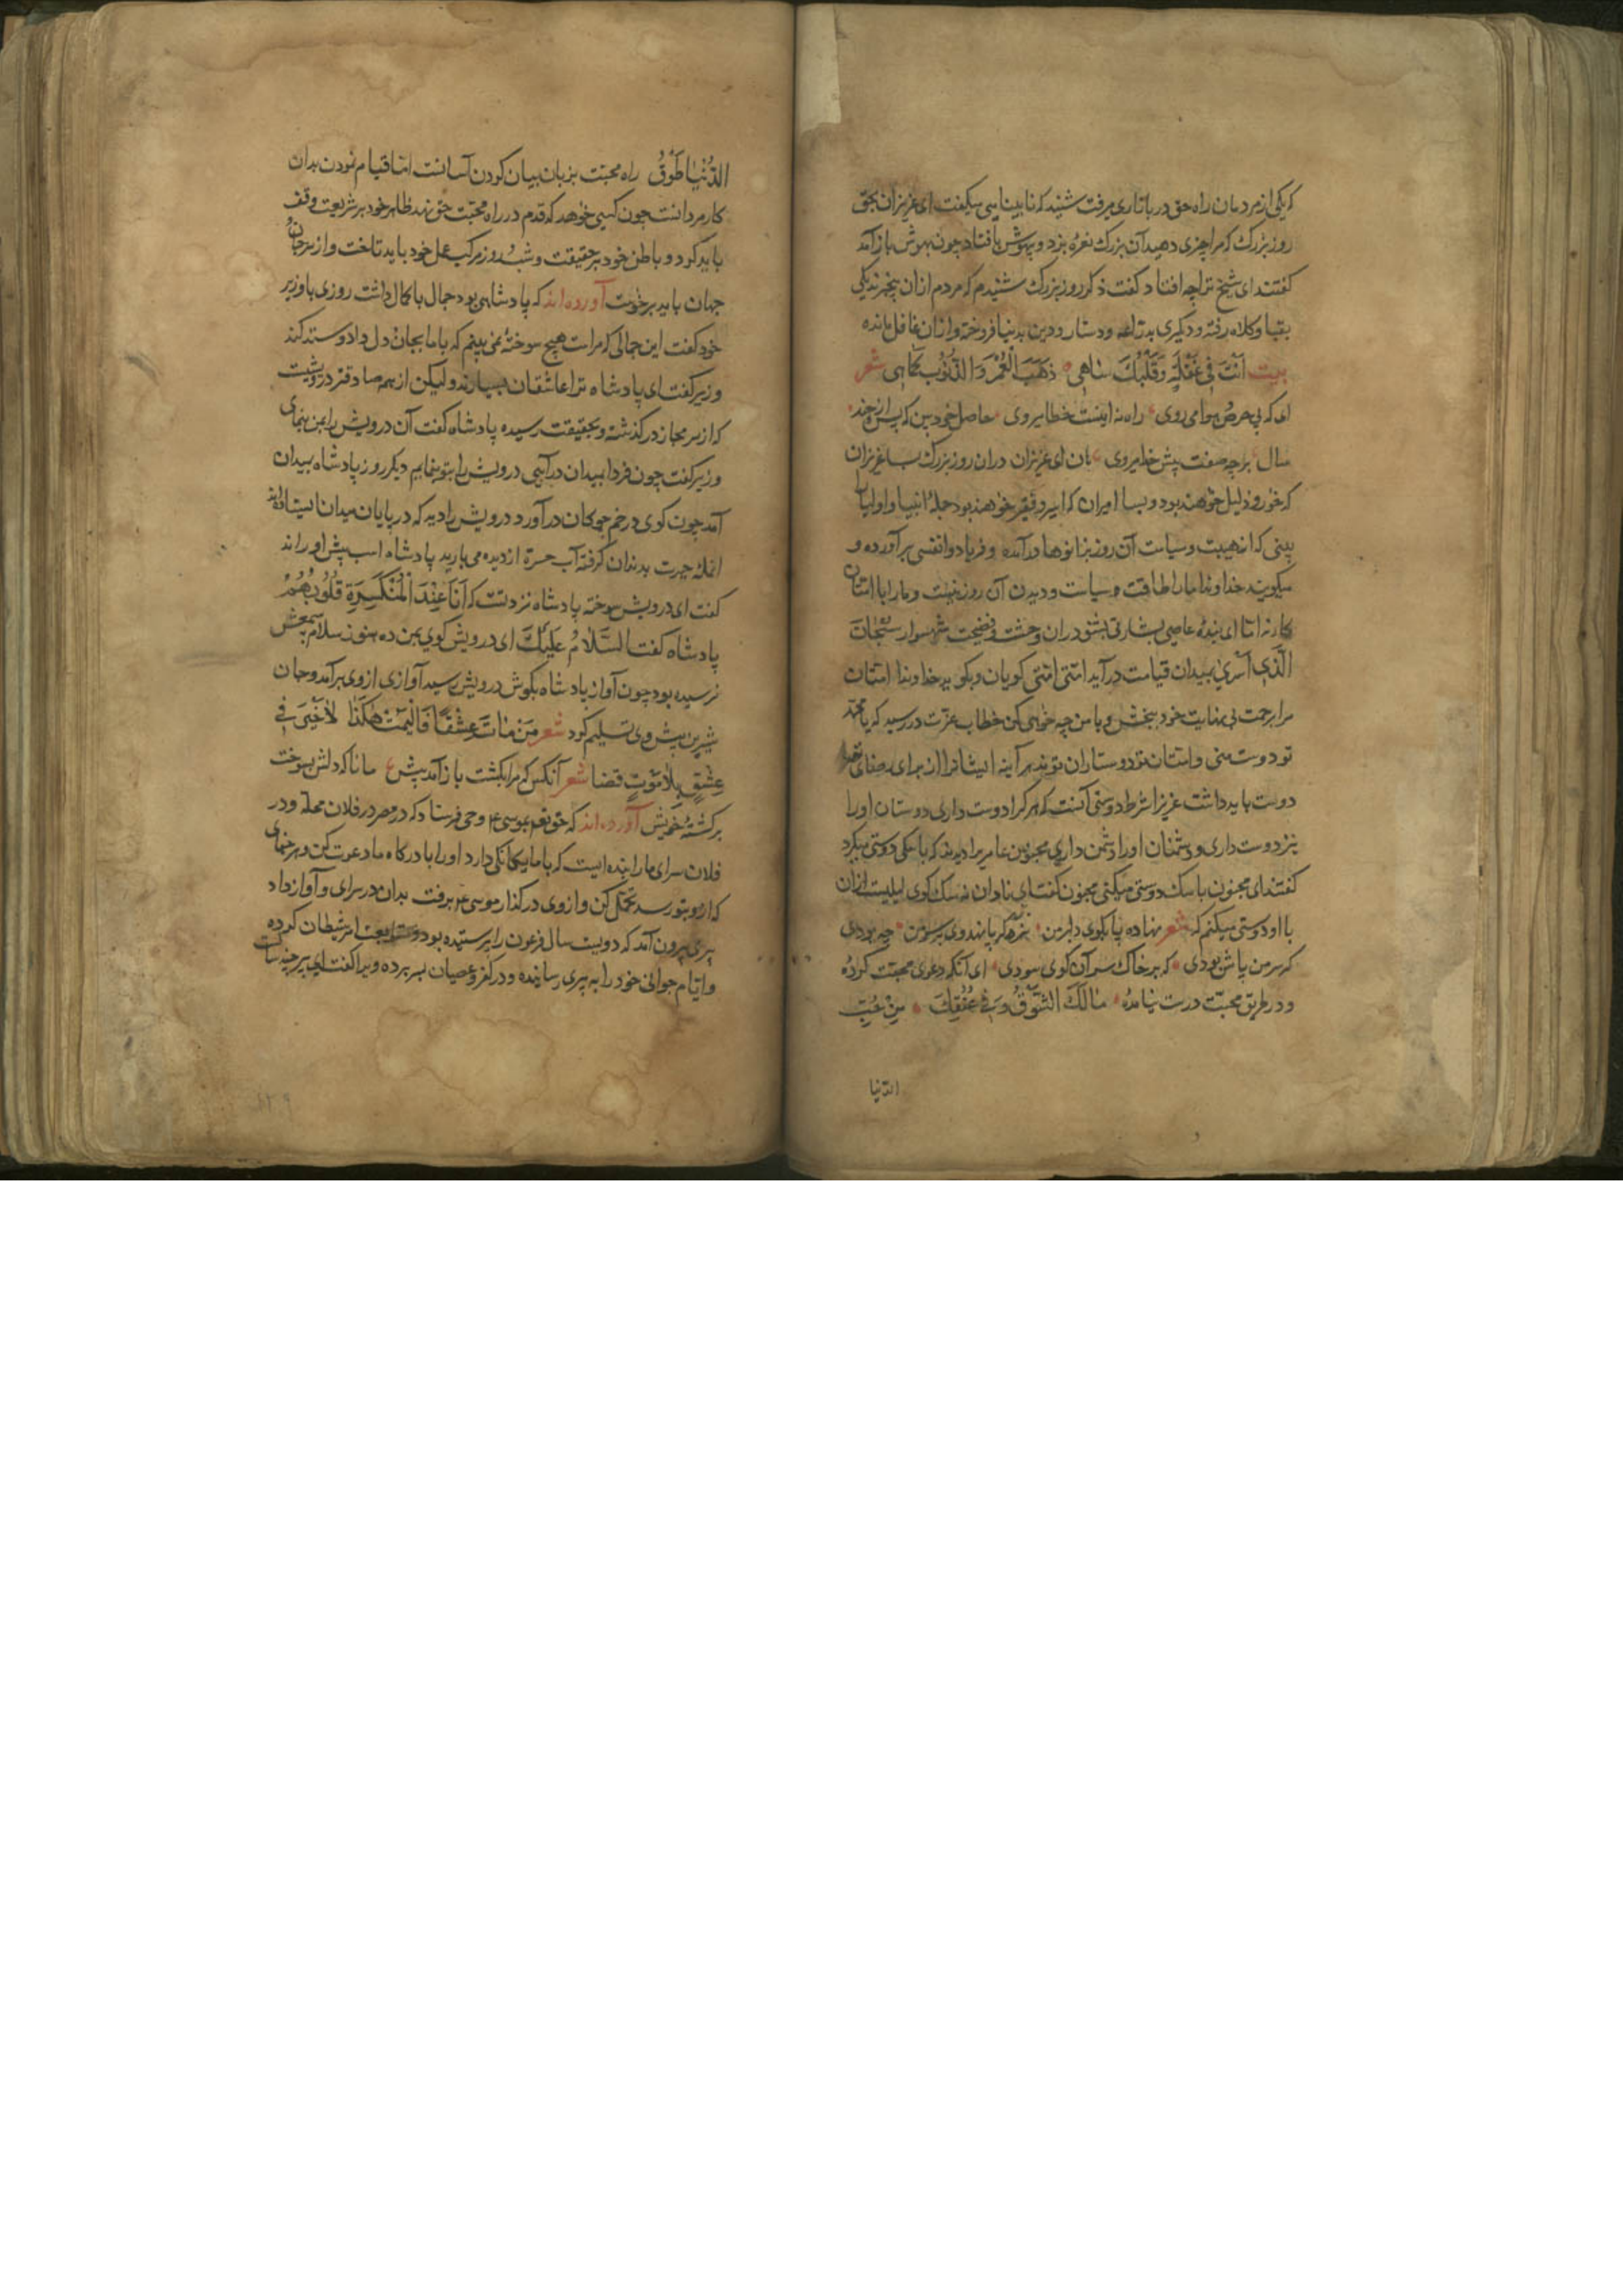 که یکی از مردمان راه حق در بازاری میرفت شنید که نابینایی میگفت ای عزیزان بحق
روز بزرک که مرا چیزی دهید آن بزرک نعرهٔ بزد و بیهوش بافتاد چون بهوش باز آمد
کفتند ای شیخ ترا چه افتاد کفت ذکر روز بزرک شنیدم که مردم ازان بیخبرند یکی
بقبا و کلاه رفته و دیکری بدراعه و دستار و دین بدنیا فروخته و ازان غافل مانده
بیت اَنْتَ فِی غَفْلَةٍ وَقَلْبُكَ سَاهِی ذَهَبَ الْعُمْرُ وَالذُّنُوبُ کَمَاهِی شعر
ای که پی حرص و هوا می روی راه نه اینست خطا میروی حاصل خود بین که پس از چند
سال بر چه صفت پیش خدا میروی هان ای عزیزان دران روز بزرک بسا عزیزان
که خوار و ذلیل خواهند بود و بسا امیران که اسیر و فقیر خواهند بود جملهٔ انبیا و اولیا را
بینی که از هیبت و سیاست آن روز بزانوها درآمده و فریاد وانفسی برآورده و
میکویند خداوندا ما را طاقت سیاست و دیدن آن روز نیست و ما را با امتان
کار نه اما ای بندهٔ عاصی بشارتی بشنو دران وحشت و فضیحت شهسوار سُبْحَانَ
الَّذِی اَسْرٰی بمیدان قیامت درآید امتی امتی کویان و بکوید خداوندا امتان
مرا برحمت بی نهایت خود ببخش و با من چه خواهی کن خطاب عزت در رسید که یا محمّد
تو دوست منی و امتان تو دوستاران تو اند هر آینه ایشانرا از برای رضای تو
دوست باید داشت عزیزا شرط دوستی آنست که هر کرا دوست داری دوستان او را
نیز دوست داری و دشمنان او را دشمن داری مجنون عامر را دیدند که با سکی دوستی میکرد
کفتند ای مجنون با سک دوستی میکنی مجنون کفت ای نادان نه سک کوی لیلیست ازان
با او دوستی میکنم که شعر نهاده پا بکوی دلبر من
که سر من پاش بودی که بر خاک سر آن کوی سودی ای آنکه دعوی محبّت کردهٔ
و در طریق محبّت درست نیامدهٔ مَالَكَ الشَّوْقُ وَفِی عُنُقِكَ مِنْ حُبِّ
الدّنیا
الدُّنْیَا طَوْقُ راه محبّت بزبان بیان کردن آسانست امّا قیام نمودن بدان
کار مردانست چون کسی خواهد که قدم در راه محبّت حق نهد ظاهر خود بر شریعت وقف
باید کرد و باطن خود بر حقیقت و شب و روز مرکب عمل خود باید تاخت و از سر جان
جهان باید برخاست آورده اند که پادشاهی بود جمال با کمال داشت روزی با وزیر
خود کفت این جمالی که مراست هیچ سوختهٔ نمی بینم که با ما بجان و دل داد و ستد کند
وزیر کفت ای پادشاه ترا عاشقان بسیارند و لیکن از همه صادقتر درویشیست
که از سر مجاز در کذشته و بحقیقت رسیده پادشاه کفت آن درویش را بمن بنمای
وزیر کفت چون فردا بمیدان درآیی درویش را بتو بنمایم دیکر روز پادشاه بمیدان
آمد چون کوی در خم چوکان درآورد درویش را دید که در پایان میدان ایستاده
انملهٔ حیرت بدندان کرفته آب حسرة از دیده می بارید پادشاه اسب پیش او راند
کفت ای درویش سوخته پادشاه نزد تست که اَنَا عِنْدَ الْمُنْکَسِرَةِ قُلُوبُهُمْ
پادشاه کفت السَّلَامُ عَلَیْكَ ای درویش کوی بمن ده هنوز سلام بسمعش
نرسیده بود چون آواز پادشاه بکوش درویش رسید آوازی از وی برآمد و جان
شیرین پیش وی تسلیم کرد شعر مَنْ مَاتَ عِشْقًا فَلْیَمُتْ هٰکَذَا لَا خَیْرَ فِی
عِشْقٍ بِلَا مَوْتٍ قضا شعر آنکس که مرا بکشت باز آمد پیش مانا که دلش بسوخت
بر کشتهٔ خویش آورده اند که حق تعم بموسی ع وحی فرستاد که در مصر در فلان محله و در
فلان سرای ما را بنده ایست که با ما بیکانکی دارد او را با درکاه ما دعوت کن و هر جفای
که ازو بتو رسد تحمّل کن و از وی در کذار موسی ع برفت بدان در سرای و آواز داد
پیری بیرون آمد که دویست سال فرعون را پرستیده بود و متابعت امر شیطان کرده
و ایّام جوانی خود را به پیری رسانیده و در کفر و عصیان بسر برده ویرا کفت ای پیر
۱۲۹